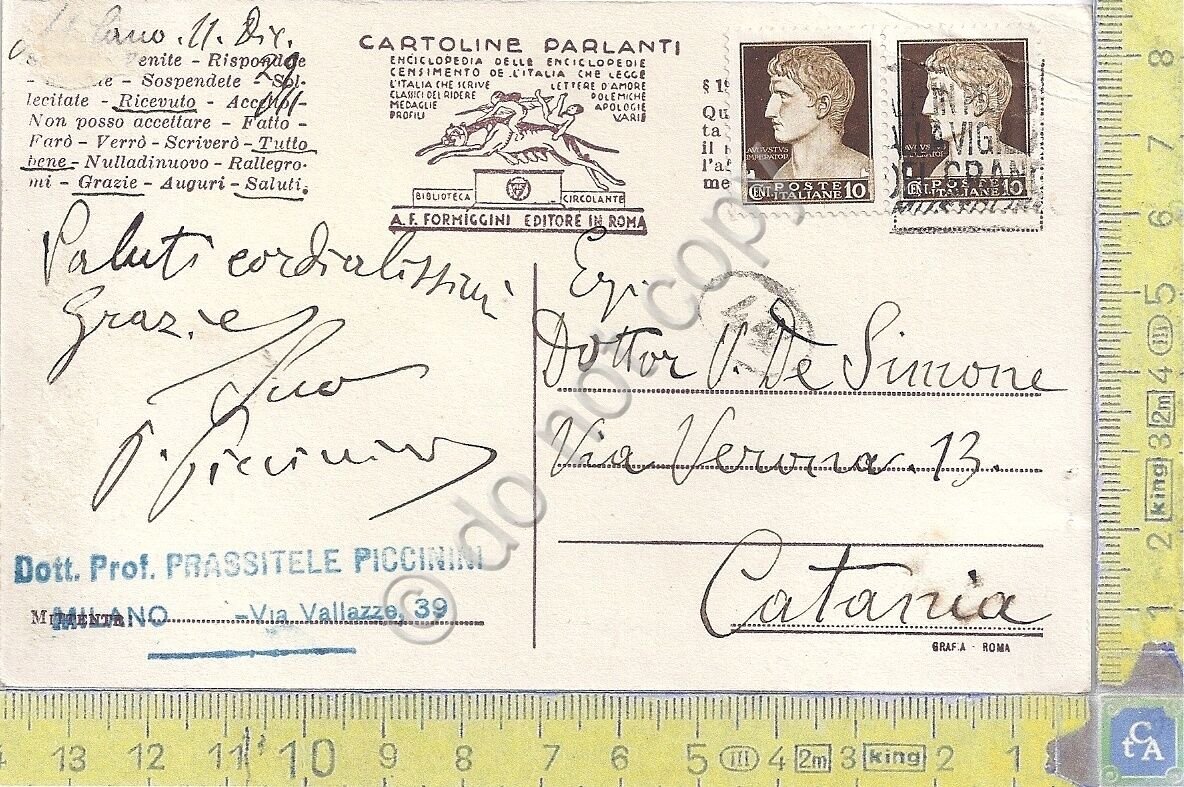 Milano. 11. Dic.
29
Venite - Rispondete
- Sospendete - Sol-
lecitate - Ricevuto - Accetto -
Non posso accettare - Fatto -
Farò - Verrò - Scriverò - Tutto
bene - Nulladinuovo - Rallegro-
mi - Grazie - Auguri - Saluti.
CARTOLINE PARLANTI
ENCICLOPEDIA DELLE ENCICLOPEDIE
CENSIMENTO DE L'ITALIA CHE LEGGE
L'ITALIA CHE SCRIVE LETTERE D'AMORE
CLASSICI DEL RIDERE POLEMICHE
MEDAGLIE APOLOGIE
PROFILI VARIE
BIBLIOTECA CIRCOLANTE
A. F. FORMIGGINI EDITORE IN ROMA
§ 19
Qu
ta
il
l'a
me
AVGVSTVS
IMPERATOR
CENT. POSTE
ITALIANE 10
AVGVSTVS
IMPERATOR
CENT. POSTE
ITALIANE 10
LA VIGI
DEL GRANO
MUSSOLINI
Saluti cordialissimi
Grazie
Suo
P. Piccinini
Egr.
Dottor V. De Simone
Via Verona. 13.
Catania
Dott. Prof. PRASSITELE PICCININI
MILANO - Via Vallazze, 39
MITTENTE
GRAF.A - ROMA
© do not copy
8
7
6
5
4
3 2m
king
2
1
13 12 11 10 9 8 7 6 5 4 2m 3 king 2 1
tCA